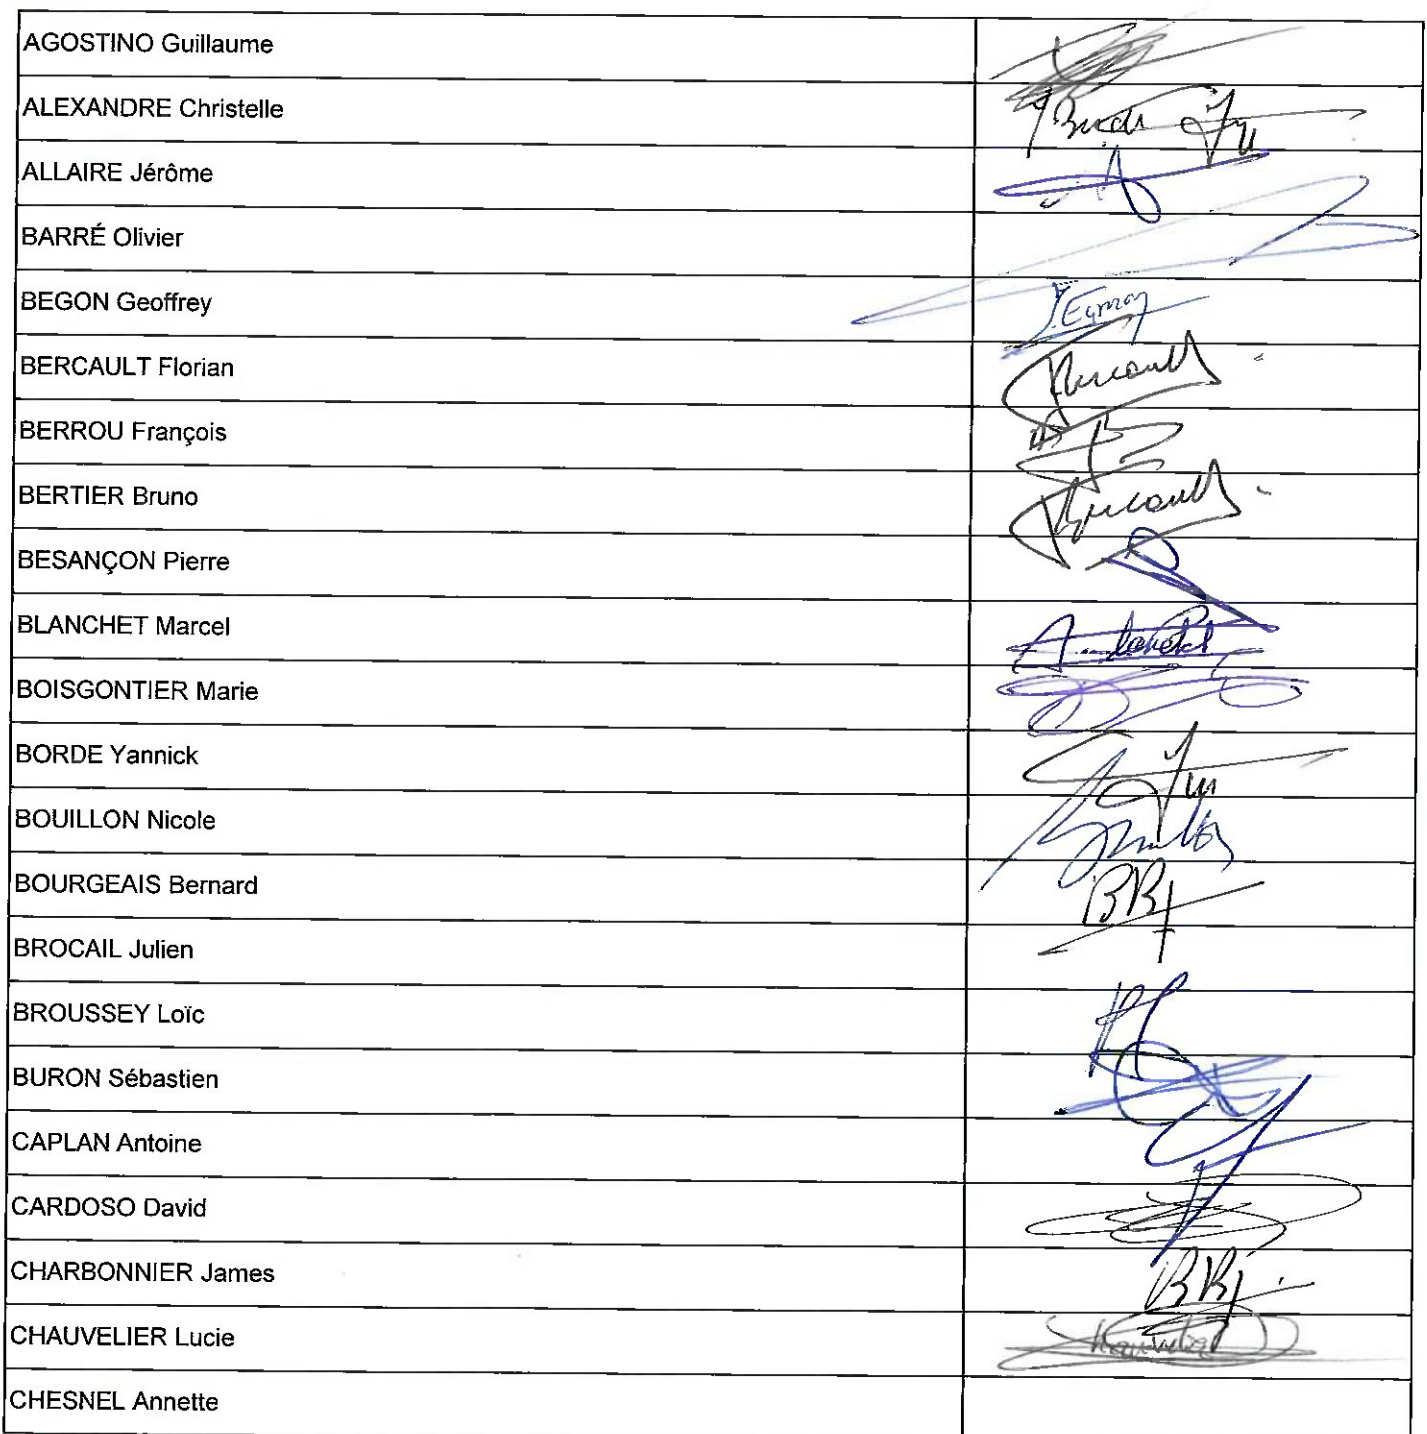 AGOSTINO Guillaume
ALEXANDRE Christelle
ALLAIRE Jérôme
BARRÉ Olivier
BEGON Geoffrey
BERCAULT Florian
BERROU François
BERTIER Bruno
BESANÇON Pierre
BLANCHET Marcel
BOISGONTIER Marie
BORDE Yannick
BOUILLON Nicole
BOURGEAIS Bernard
BROCAIL Julien
BROUSSEY Loïc
BURON Sébastien
CAPLAN Antoine
CARDOSO David
CHARBONNIER James
CHAUVELIER Lucie
CHESNEL Annette